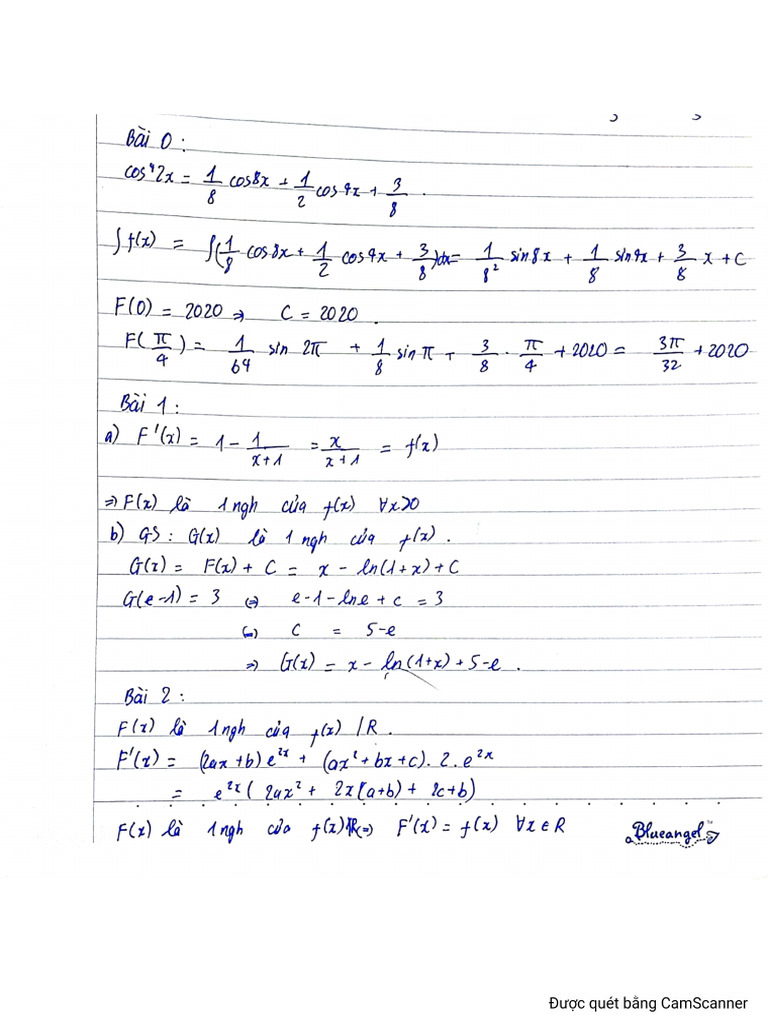 Bài 0:
cos⁴2x = 1/8 cos8x + 1/2 cos4x + 3/8.
∫f(x) = ∫(1/8 cos8x + 1/2 cos4x + 3/8)dx = 1/8² sin8x + 1/8 sin4x + 3/8 x + C
F(0) = 2020 => C = 2020.
F(π/4) = 1/64 sin 2π + 1/8 sin π + 3/8 . π/4 + 2020 = 3π/32 + 2020
Bài 1:
a) F'(x) = 1 - 1/(x+1) = x/(x+1) = f(x)
=> F(x) là 1 ngh của f(x) ∀x>0
b) GS: G(x) là 1 ngh của f(x).
G(x) = F(x) + C = x - ln(1+x) + C
G(e-1) = 3 <=> e-1-lne + c = 3
<=> C = 5-e
=> G(x) = x - ln(1+x) + 5-e.
Bài 2:
F(x) là 1 ngh của f(x) /R.
F'(x) = (2ax+b)e^2x + (ax²+bx+c).2.e^2x
= e^2x(2ax² + 2x(a+b) + 2c+b)
F(x) là 1 ngh của f(x)/R <=> F'(x) = f(x) ∀x∈R
Blueangel™
Được quét bằng CamScanner